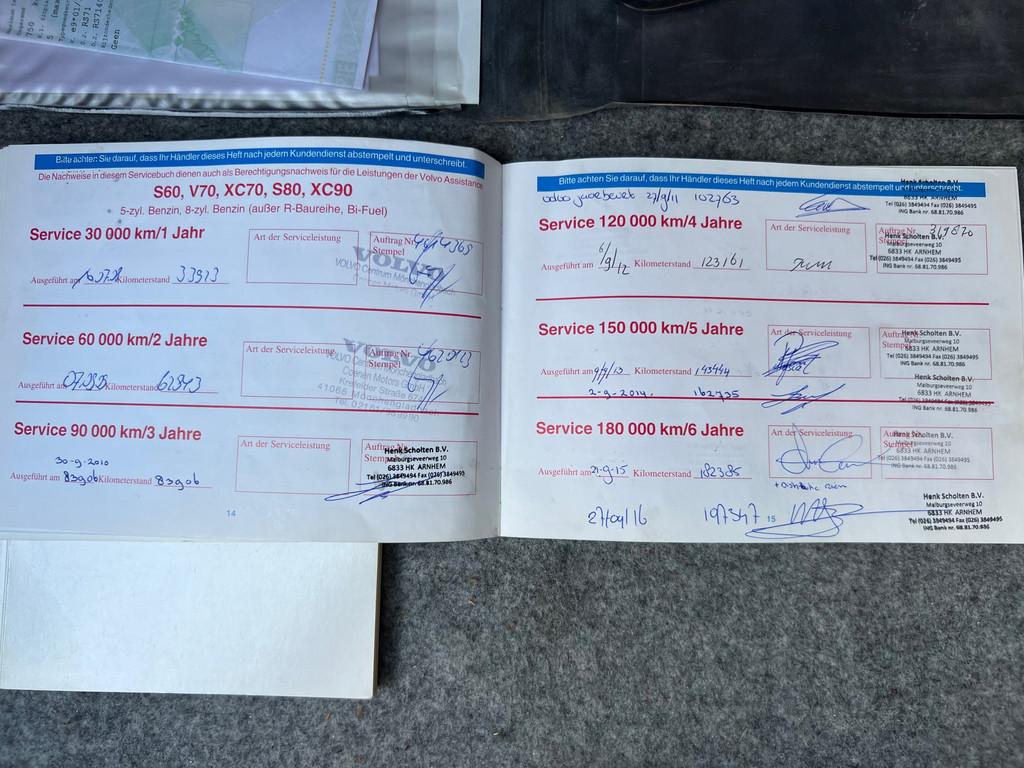 750
5 (maa
K. e9*01/
D.2. RS71
O.2. RS7145
Geen
Bitte achten Sie darauf, dass Ihr Händler dieses Heft nach jedem Kundendienst abstempelt und unterschreibt.
Die Nachweise in diesem Servicebuch dienen auch als Berechtigungsnachweis für die Leistungen der Volvo Assistance
S60, V70, XC70, S80, XC90
5-zyl. Benzin, 8-zyl. Benzin (außer R-Baureihe, Bi-Fuel)
Service 30 000 km/1 Jahr
Art der Serviceleistung
Auftrag Nr.
Stempel
VOLVO
Ausgeführt am Kilometerstand 33913
Service 60 000 km/2 Jahre
Art der Serviceleistung
Auftrag Nr.
VOLVO
Coenen Motors GmbH
Krefelder Straße
41066 Mönchengladbach
Ausgeführt am Kilometerstand 62843
Service 90 000 km/3 Jahre
Art der Serviceleistung
Auftrag Nr.
Stempel
Henk Scholten B.V.
Malburgseveerweg 10
6833 HK ARNHEM
Tel (026) 3849494 Fax (026) 3849495
ING Bank nr. 68.81.70.986
30-9-2010
Ausgeführt am 83906 Kilometerstand 83906
14
Bitte achten Sie darauf, dass Ihr Händler dieses Heft nach jedem Kundendienst abstempelt und unterschreibt.
Henk Scholten B.V.
6833 HK ARNHEM
Tel (026) 3849494 Fax (026) 3849495
ING Bank nr. 68.81.70.986
27/9/11 102763
Service 120 000 km/4 Jahre
Art der Serviceleistung
Auftrag Nr.
Stempel
Henk Scholten B.V.
Malburgseveerweg 10
6833 HK ARNHEM
Tel (026) 3849494 Fax (026) 3849495
ING Bank nr. 68.81.70.986
Ausgeführt am 6/9/12 Kilometerstand 123161
Service 150 000 km/5 Jahre
Art der Serviceleistung
Auftrag Nr.
Stempel
Henk Scholten B.V.
Malburgseveerweg 10
6833 HK ARNHEM
Tel (026) 3849494 Fax (026) 3849495
ING Bank nr. 68.81.70.986
Ausgeführt am 9/9/13 Kilometerstand 143444
2-9-2014. 162735
Henk Scholten B.V.
Malburgseveerweg 10
6833 HK ARNHEM
Tel (026) 3849494 Fax (026) 3849495
ING Bank nr. 68.81.70.986
Service 180 000 km/6 Jahre
Art der Serviceleistung
Auftrag Nr.
Stempel
Henk Scholten B.V.
Malburgseveerweg 10
6833 HK ARNHEM
Tel (026) 3849494 Fax (026) 3849495
ING Bank nr. 68.81.70.986
Ausgeführt am 21-9-15 Kilometerstand 182385
27/09/16 197347
15
Henk Scholten B.V.
Malburgseveerweg 10
6833 HK ARNHEM
Tel (026) 3849494 Fax (026) 3849495
ING Bank nr. 68.81.70.986